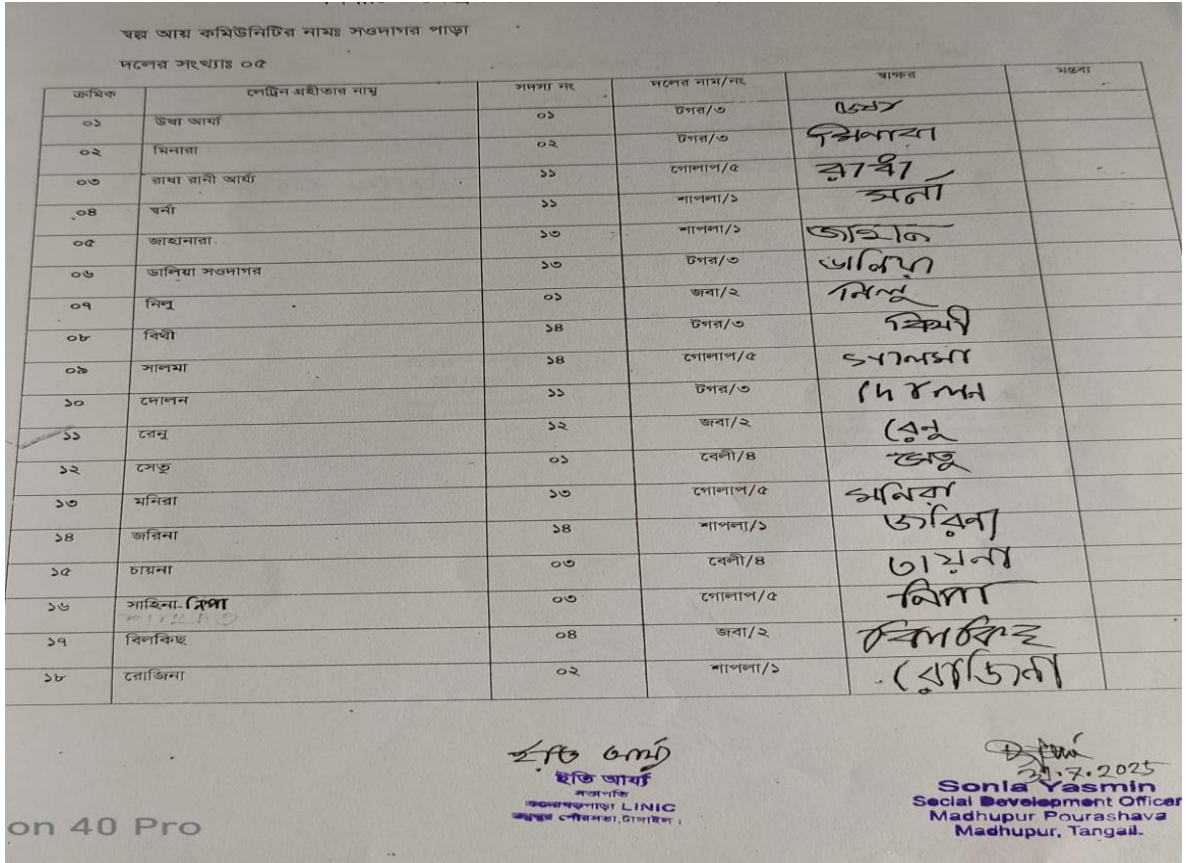 স্বল্প আয় কমিউনিটির নামঃ সওদাগর পাড়া
দলের সংখ্যাঃ ০৫
ক্রমিক লেট্রিন গ্রহীতার নাম সদস্য নং দলের নাম/নং স্বাক্ষর মন্তব্য
০১ উষা আর্য্য ০১ টগর/৩
০২ মিনারা ০২ টগর/৩ মিনারা
০৩ রাধা রানী আর্য্য ১১ গোলাপ/৫ রাধা
০৪ স্বর্না ১১ শাপলা/১ সর্না
০৫ জাহানারা ১৩ শাপলা/১ জাহান
০৬ ডালিয়া সওদাগর ১৩ টগর/৩ ডালিয়া
০৭ নিলু ০১ জবা/২ নিলু
০৮ বিথী ১৪ টগর/৩ বিথী
০৯ সালমা ১৪ গোলাপ/৫ সালমা
১০ দোলন ১১ টগর/৩ দোলন
১১ রেনু ১২ জবা/২ রেনু
১২ সেতু ০১ বেলী/৪ সেতু
১৩ মনিরা ১৩ গোলাপ/৫ মনিরা
১৪ জরিনা ১৪ শাপলা/১ জরিনা
১৫ চায়না ০৩ বেলী/৪ চায়না
১৬ সাহিনা নিপা ০৩ গোলাপ/৫ নিপা
১৭ বিলকিছ ০৪ জবা/২ বিলকিছ
১৮ রোজিনা ০২ শাপলা/১ রোজিনা
ইতি আর্য্য
ইতি আর্য্য
সভাপতি
সওদাগরপাড়া LINIC
মধুপুর পৌরসভা, টাঙ্গাইল।
31.7.2025
Sonia Yasmin
Social Development Officer
Madhupur Pourashava
Madhupur, Tangail.
on 40 Pro